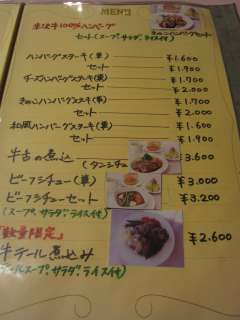 MENU
100%ハンバーグ
きのこハンバーグセット
セット(スープ、サラダ、ライス付)
ハンバーグステーキ(単) ¥1.600
セット ¥1.900
チーズハンバーグステーキ(単) ¥1.700
セット ¥2.000
きのこハンバーグステーキ(単) ¥1.700
セット ¥2.000
和風ハンバーグステーキ(単) ¥1.600
セット ¥1.900
牛舌の煮込 ¥3.600
(タンシチュー
ビーフシチュー(単) ¥3.000
ビーフシチューセット ¥3.200
(スープ、サラダ、ライス付)
"数量限定"
牛テール煮込み ¥2.600
テールスープ、サラダ、ライス付)